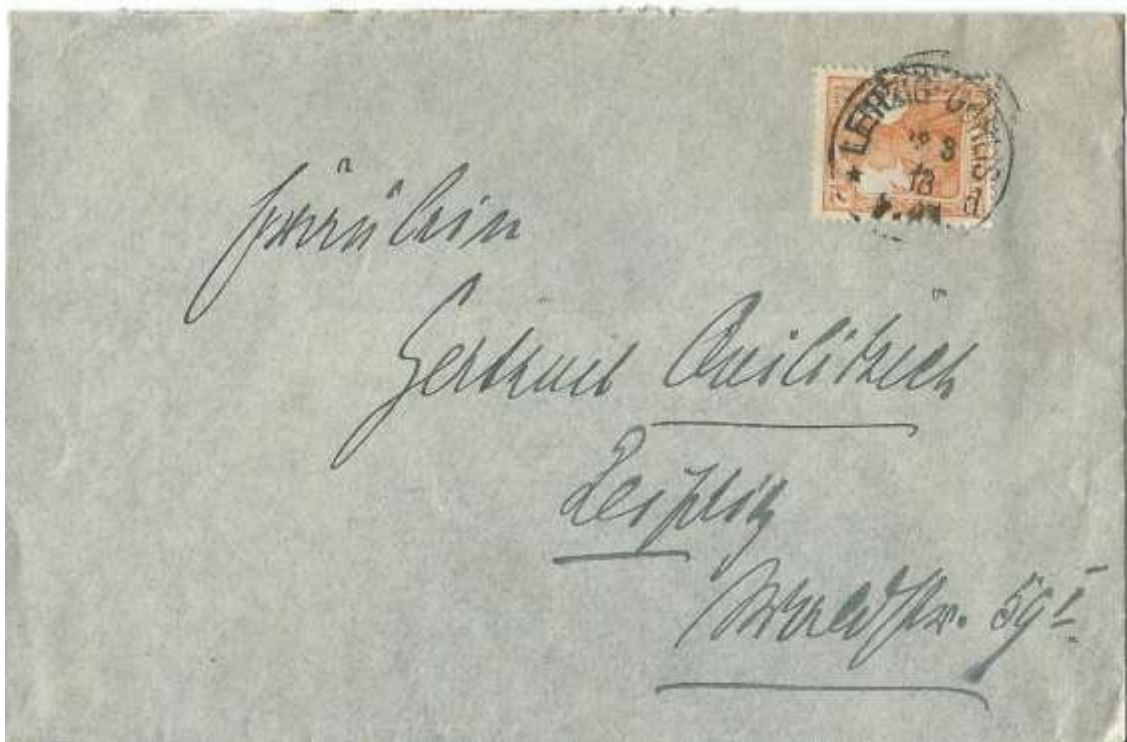 LEIPZIG-GOHLIS
3
18
* d
Fräulein
Gertrud Quilitzsch
Leipzig
Waldstr. 59 I